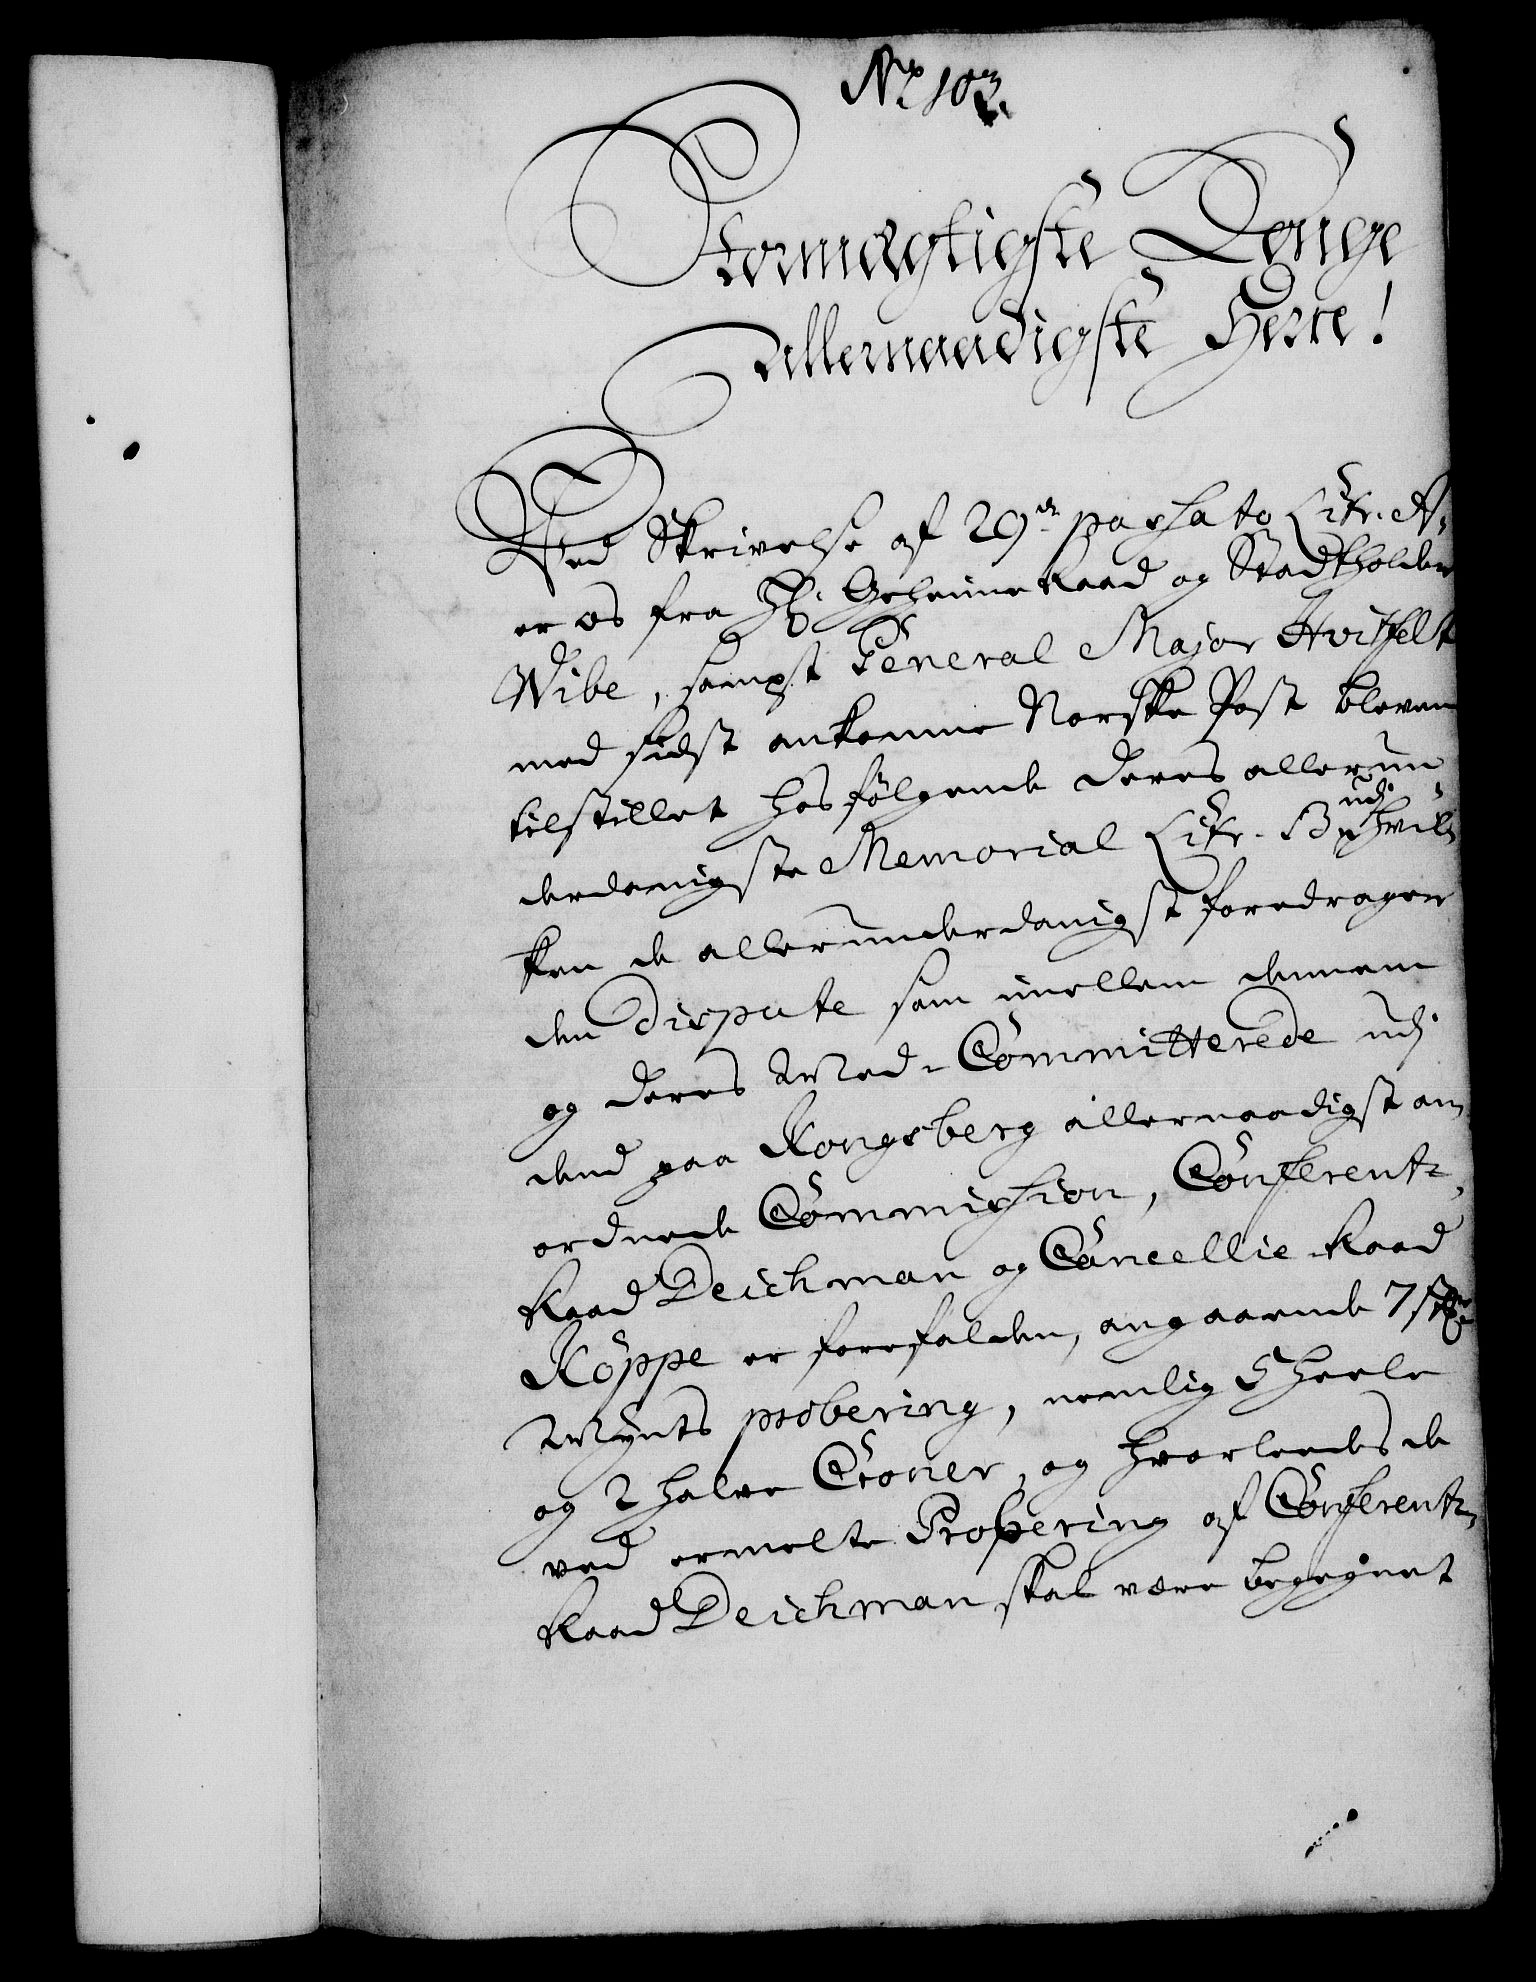 No 103.
Stormægtigste Konge
allernaadigste Herre!
Ved Skrivelse af 29de passato Litr. A:
er os fra Hr. Geheimeraad og Stadtholder
Wibe, sampt General Major Hvitfelt
med sidst ankomne Norske Post bleven
tilstillet hosfølgende deres allerun„
derdanigste Memorial Litr. B udj hvil„
ken de allerunderdanigst foredrager
den Dispute som imellem dennem
og deres Med-Committerede udj
dend paa Kongsberg allernaadigst an
ordnede Commission, Conferentz„
Raad Deichman og Cancellie-Raad
Köppe er forefalden, angaaende 7 st:
Mynts probering, nemlig 5 heele
og 2 halve Croner, og hvorleedes de
ved ermelte Probering af Conferentz„
Raad Deichman skal være begegnet